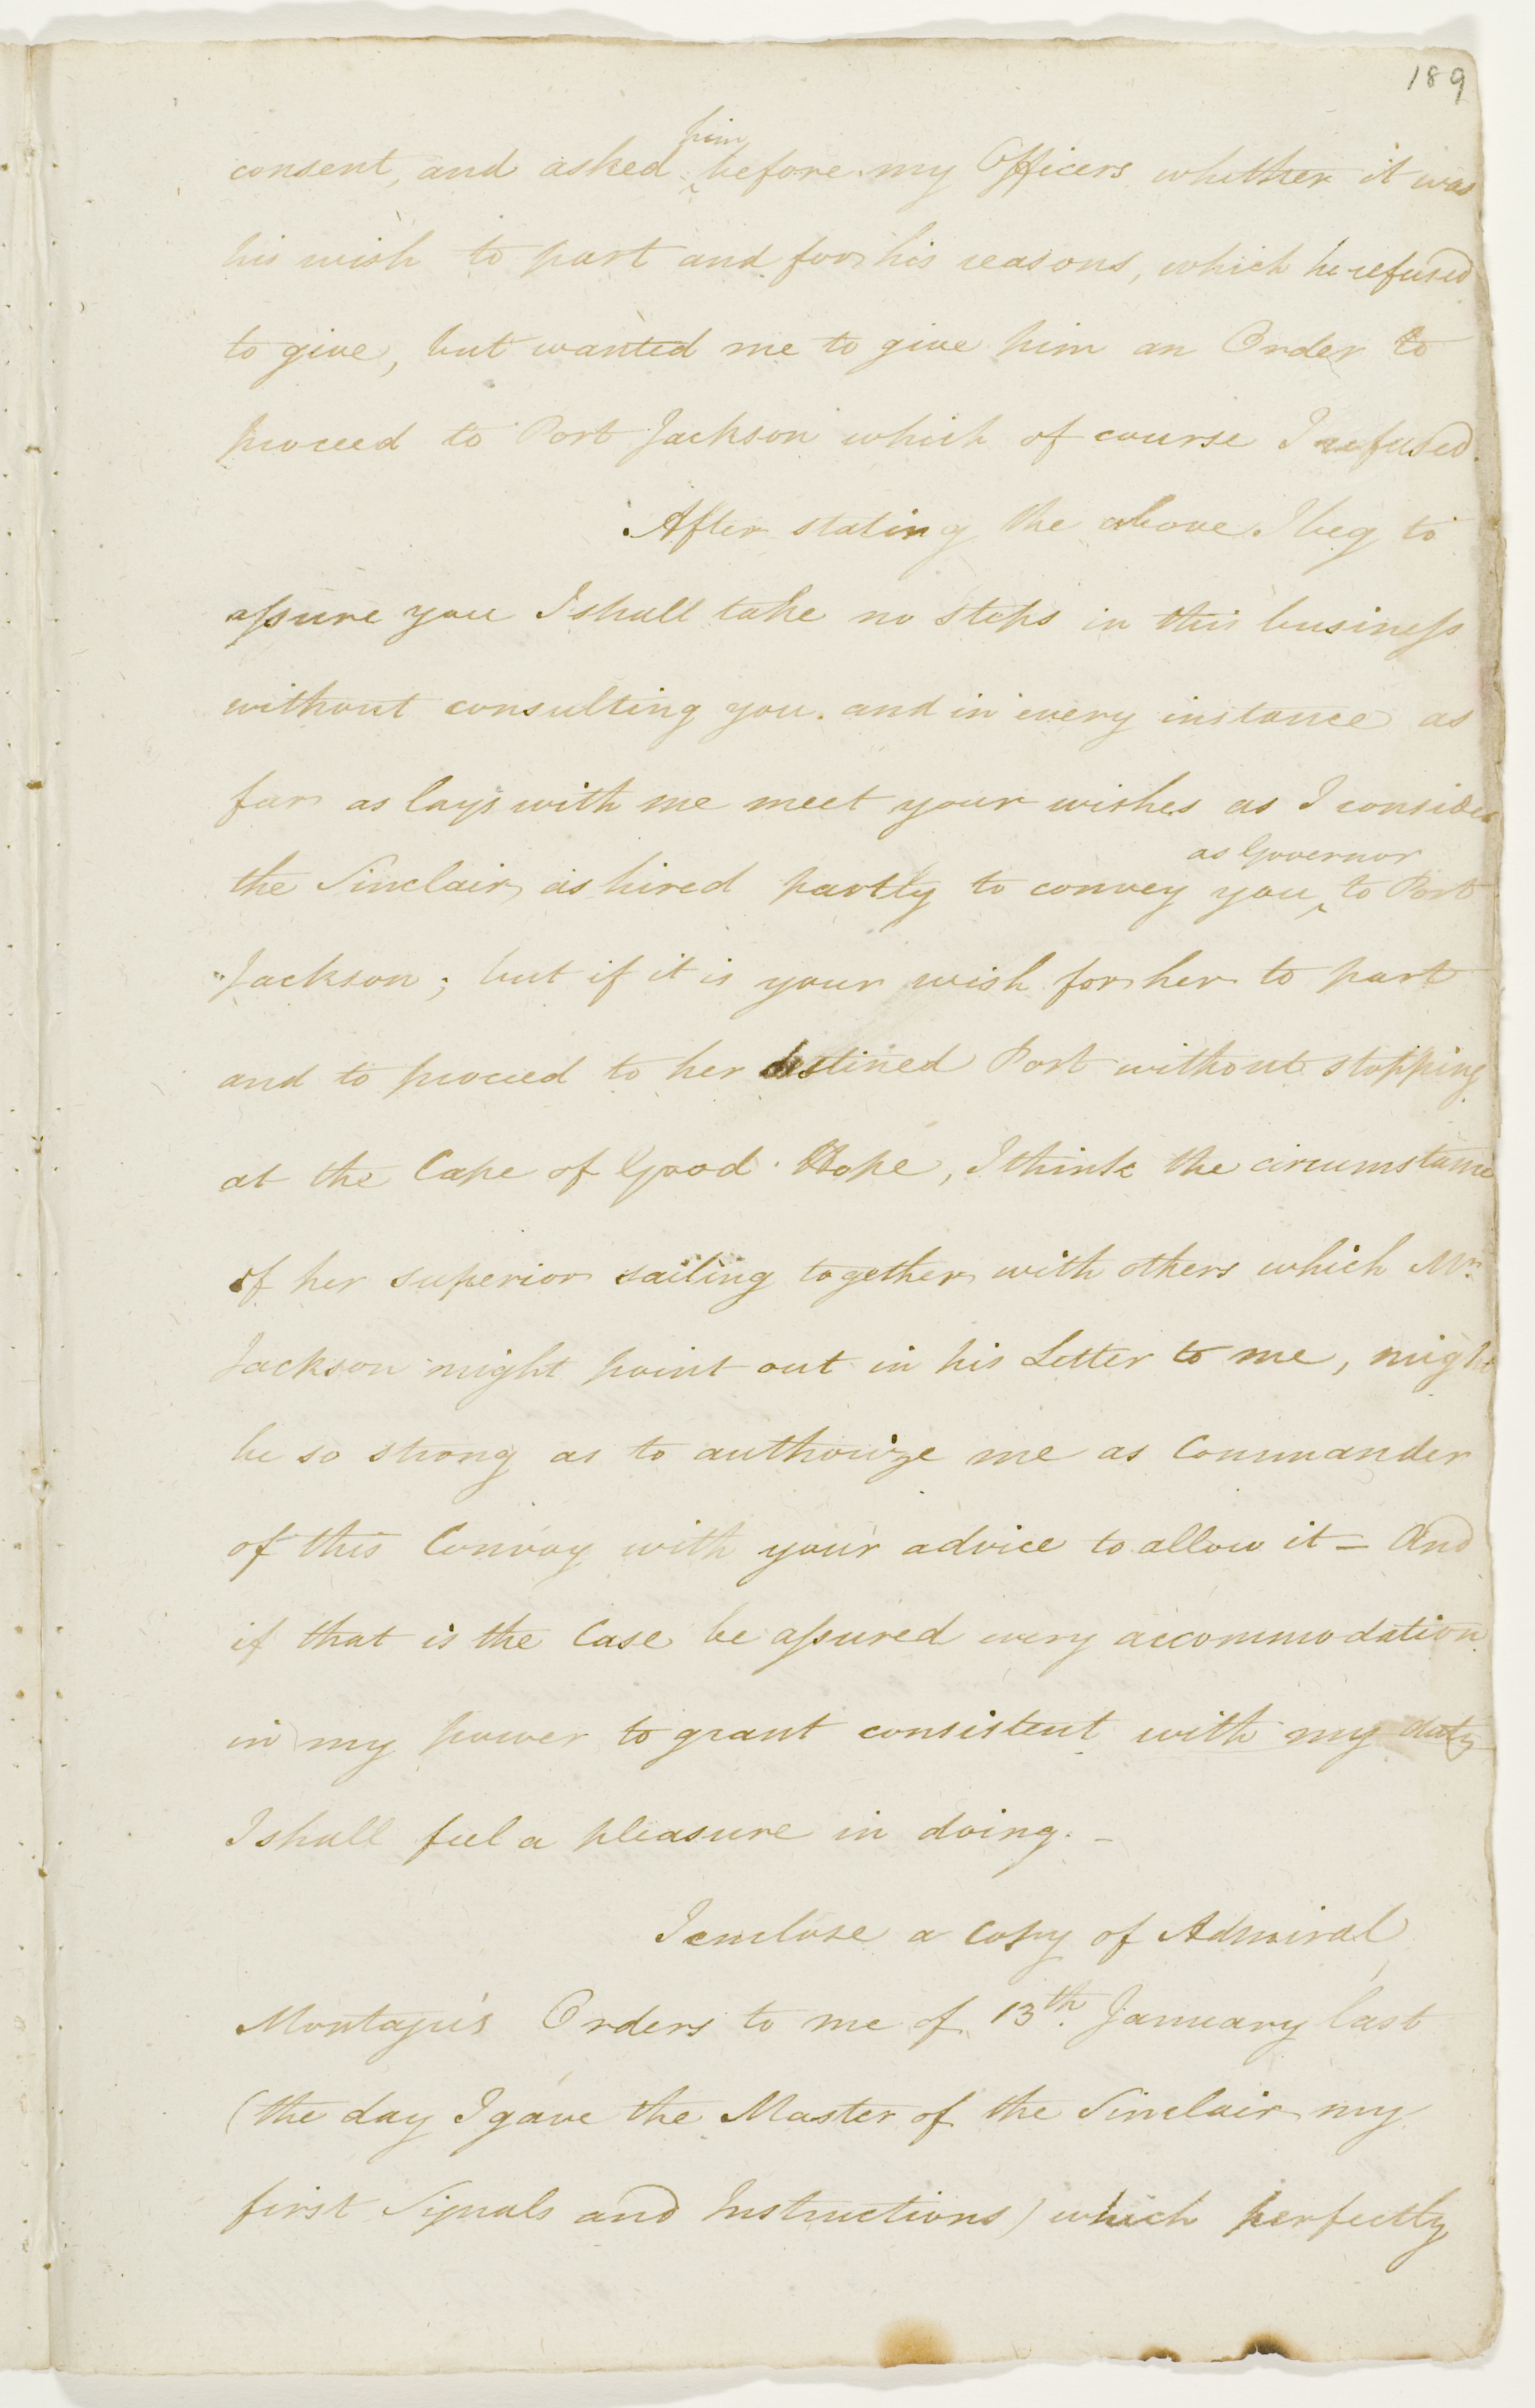 189
him
consent, and asked ^ before my Officers whether it was
his wish to part and for his reasons, which he refused
to give, but wanted me to give him an Order to
proceed to Port Jackson which of course I refused.
After stating the above I beg to
assure you I shall take no steps in this business
without consulting you. and in every instance as
far as lays with me meet your wishes as I consider
as Governor
the Sinclair as hired partly to convey you ^ to Port
Jackson; but if it is your wish for her to part
and to proceed to her destined Port without stopping
at the Cape of Good Hope, I think the circumstance
of her superior sailing together with others which Mr.
Jackson might point out in his Letter to me, might
be so strong as to authorize me as Commander
of this Convoy with your advice to allow it = And
if that is the Case be assured every accommodation
in my power to grant consistent with my duty
I shall feel a pleasure in doing. –
I enclose a Copy of Admiral
Montagu's Orders to me of 13th. January last
(the day I gave the Master of the Sinclair my
first Signals and Instructions) which perfectly